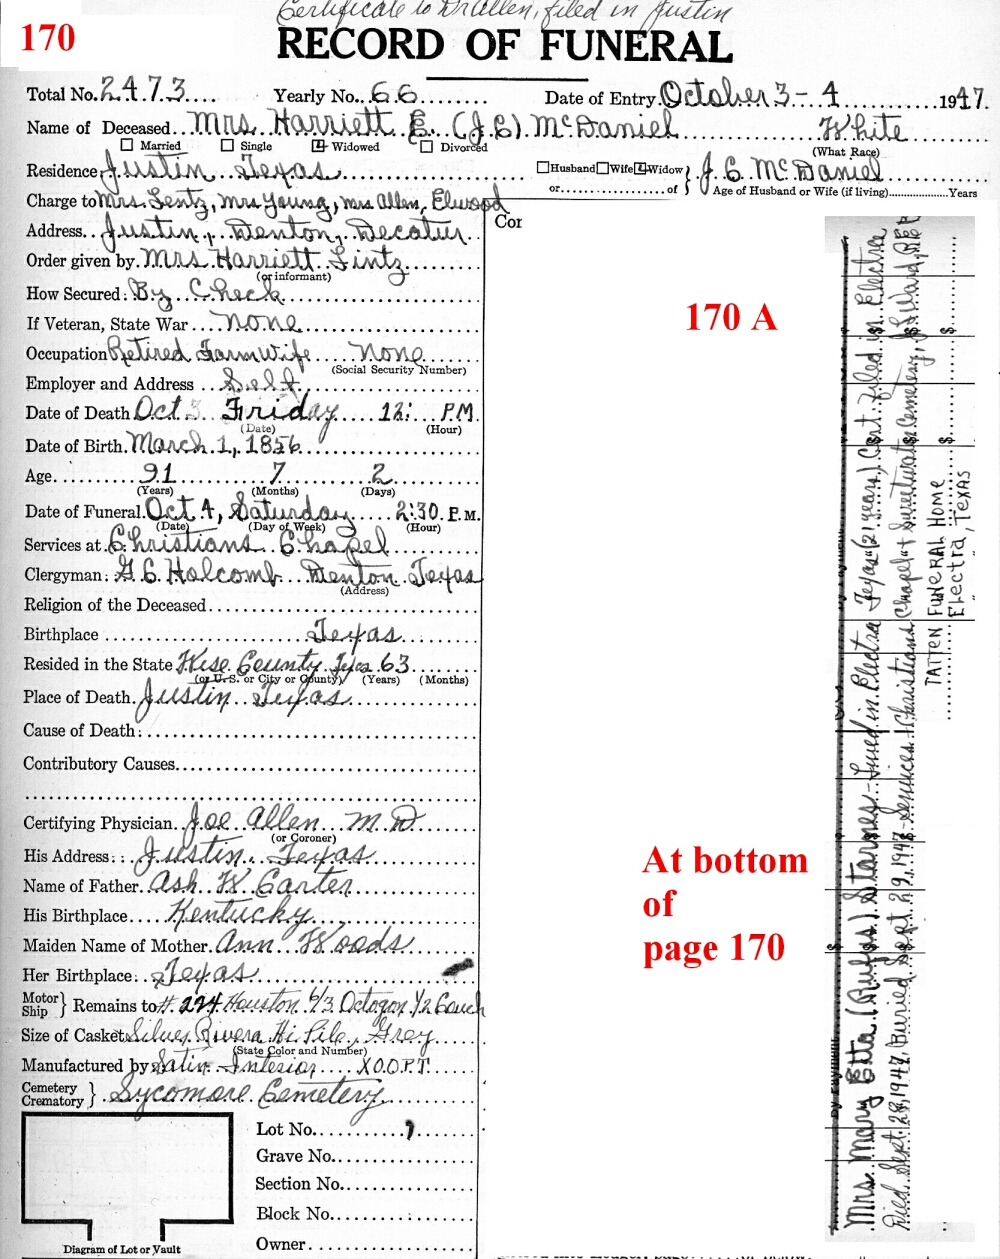 Certificate to Dr Allen, filed in Justin
170
RECORD OF FUNERAL
Total No. 2473 Yearly No. 66 Date of Entry October 3-4 1947.
Name of Deceased Mrs. Harriett E. (J.C.) McDaniel White
Married Single Widowed Divorced (What Race)
Residence Justin Texas Husband Wife Widow J. C. McDaniel
or of Age of Husband or Wife (if living) Years
Charge to Mrs. Lentz, Mrs Young, Mrs Allen, Elwood
Cor
Address Justin, Denton, Decatur
Order given by Mrs. Harriett Lintz
(or informant)
How Secured: By Check
If Veteran, State War none
Occupation Retired Farm Wife none
(Social Security Number)
Employer and Address Self
Date of Death Oct 3 Friday 12: P.M.
(Date) (Hour)
Date of Birth March 1, 1856
Age 91 7 2
(Years) (Months) (Days)
Date of Funeral Oct 4, Saturday 2:30 P.M.
(Date) (Day of Week) (Hour)
Services at Christians Chapel
Clergyman: G. C. Holcomb Denton Texas
(Address)
Religion of the Deceased
Birthplace Texas
Resided in the State Wise County Texas 63
(or U.S. or City or County) (Years) (Months)
Place of Death Justin Texas
Cause of Death:
Contributory Causes
Certifying Physician Joe Allen M.D
(or Coroner)
His Address: Justin Texas
Name of Father Ash W Carter
His Birthplace Kentucky
Maiden Name of Mother Ann Woods
Her Birthplace: Texas
Motor Ship } Remains to #224 Houston 6/3 Octogon 1/2 Couch
Size of Casket Silver Rivera Hi Pile, Grey
(State Color and Number)
Manufactured by Satin Interior XOOPT
Cemetery Crematory } Sycomore Cemetery
Lot No.
Grave No.
Section No.
Block No.
Owner
Diagram of Lot or Vault
170 A
At bottom
of
page 170
Mrs. Mary Etta (Rufus) Starnes - Lived in Electra Texas (21 years) Cert. filed in Electra
Died Sept. 28, 1947, Buried Sept. 29, 1947 - Services Christians Chapel Cemetery, J. Ward,
TATTEN FUNERAL HOME
Electra, TEXAS